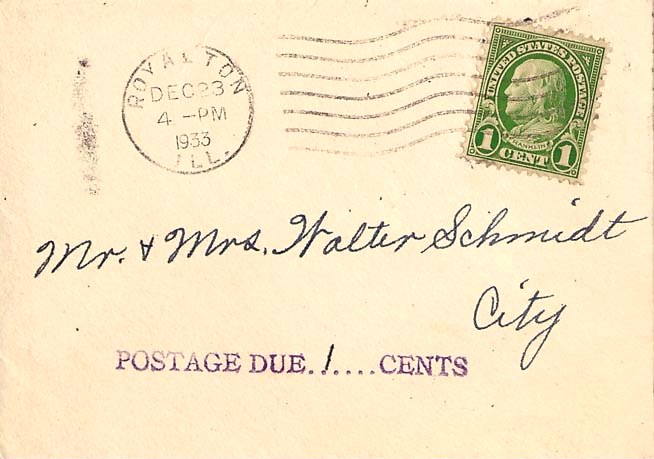 ROYALTON
DEC 23
4 -PM
1933
ILL.
UNITED STATES POSTAGE
FRANKLIN
1 CENT 1
Mr. & Mrs. Walter Schmidt
City
POSTAGE DUE. 1 ....CENTS